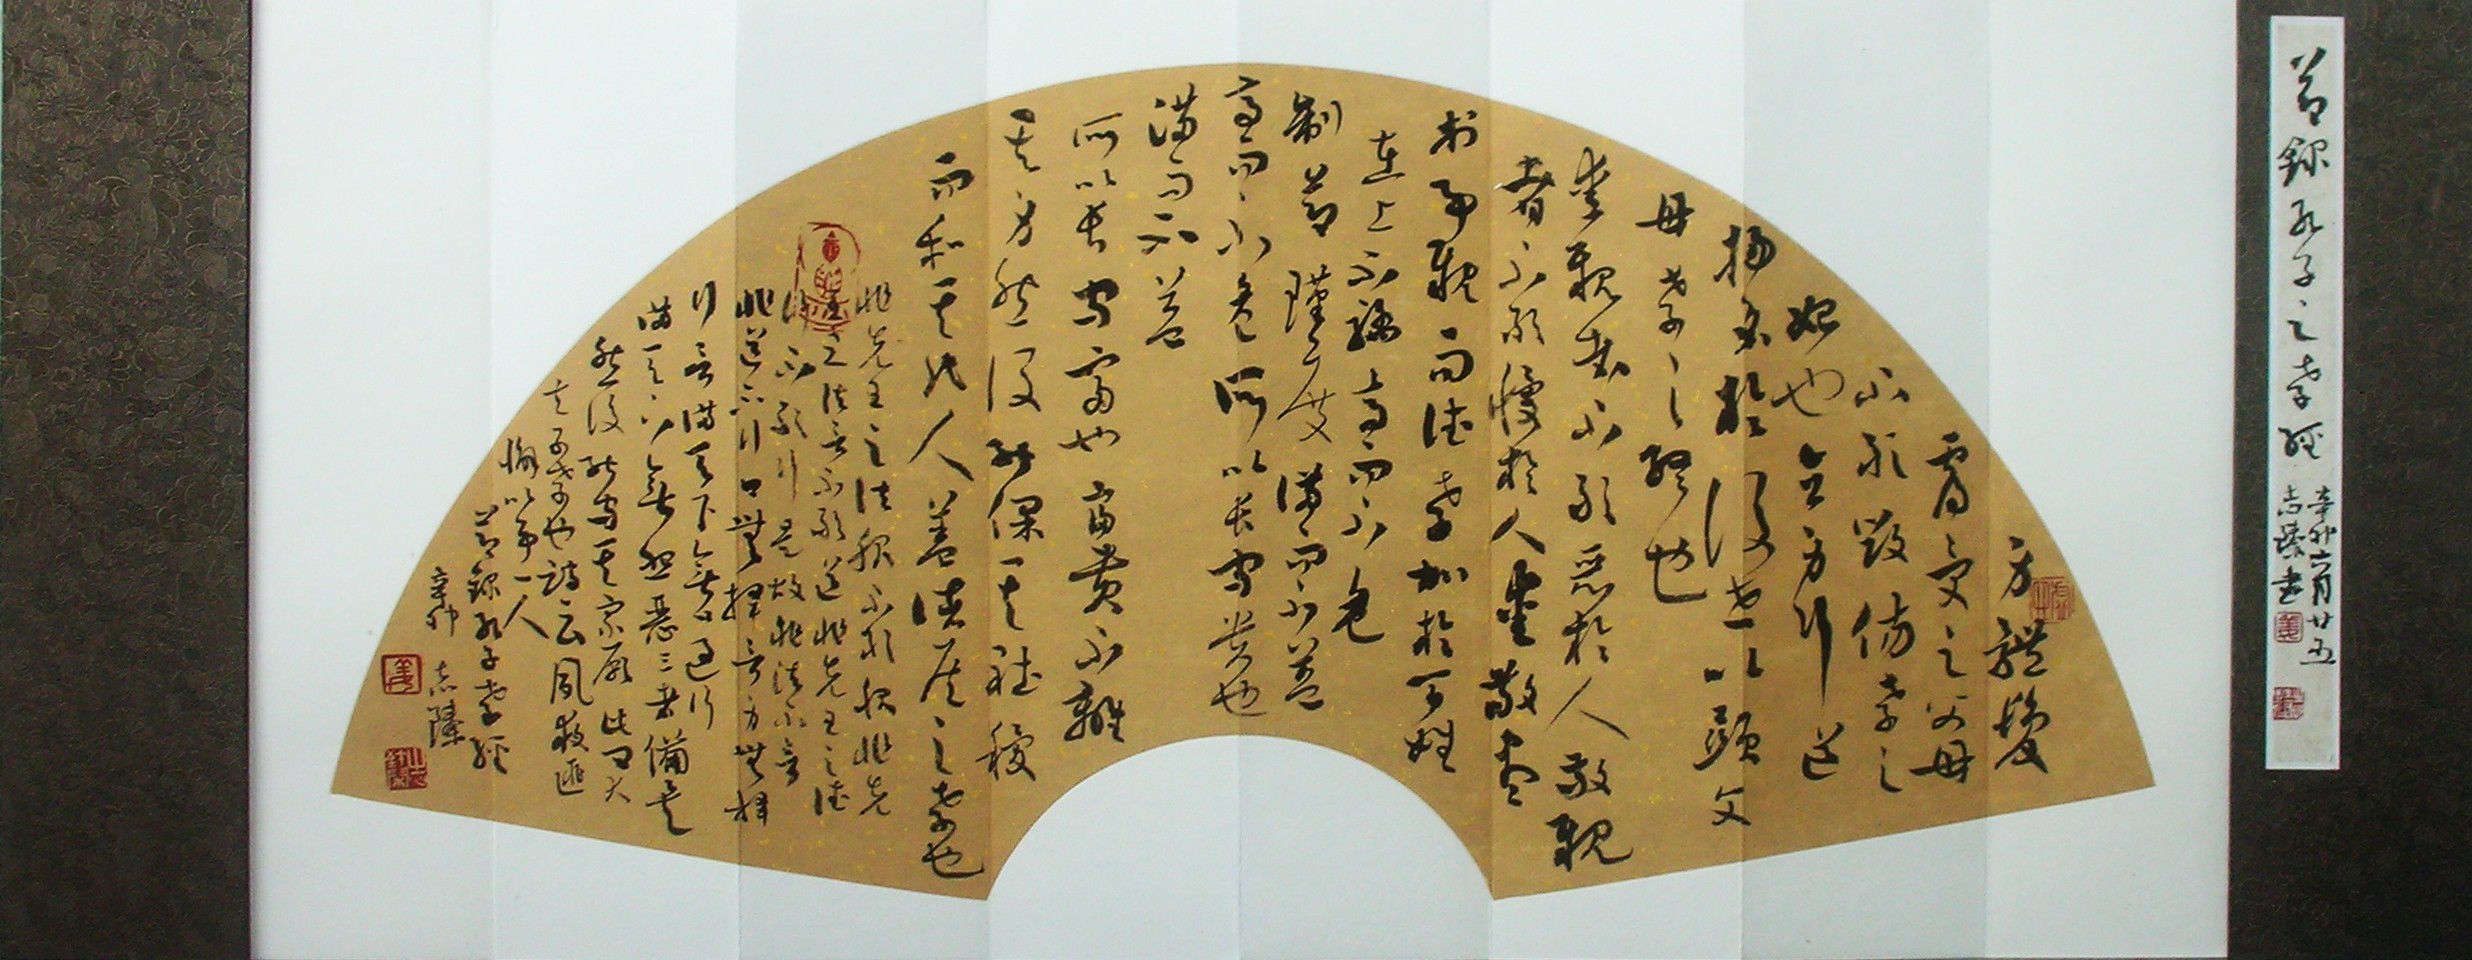 节錄孔子之孝經
辛卯六月廿五
志臻書
身體髮
膚受之父母
不敢毀伤孝之
始也立身行道
揚名於後世以顕父
母孝之終也
愛親者不敢惡於人敬親
者不敢慢於人愛敬盡
於事親而德孝加於百姓
在上不驕高而不危
制节謹度滿而不益
高而不危所以長守贵也
滿而不益
所以長守富也富貴不離
其身然後能保其社稷
而和其民人蓋诸侯之孝也
非先王之法服不敢服非先
王之法言不敢道非先王之德
行不敢行是故非法不言
非道不行口無擇言身無擇
行言滿天下無口過行
滿天下無怨惡三者備矣
然後能守其宗廟此曰大
夫之孝也詩云夙夜匪
懈以事一人
节錄孔子孝經
辛卯
志臻